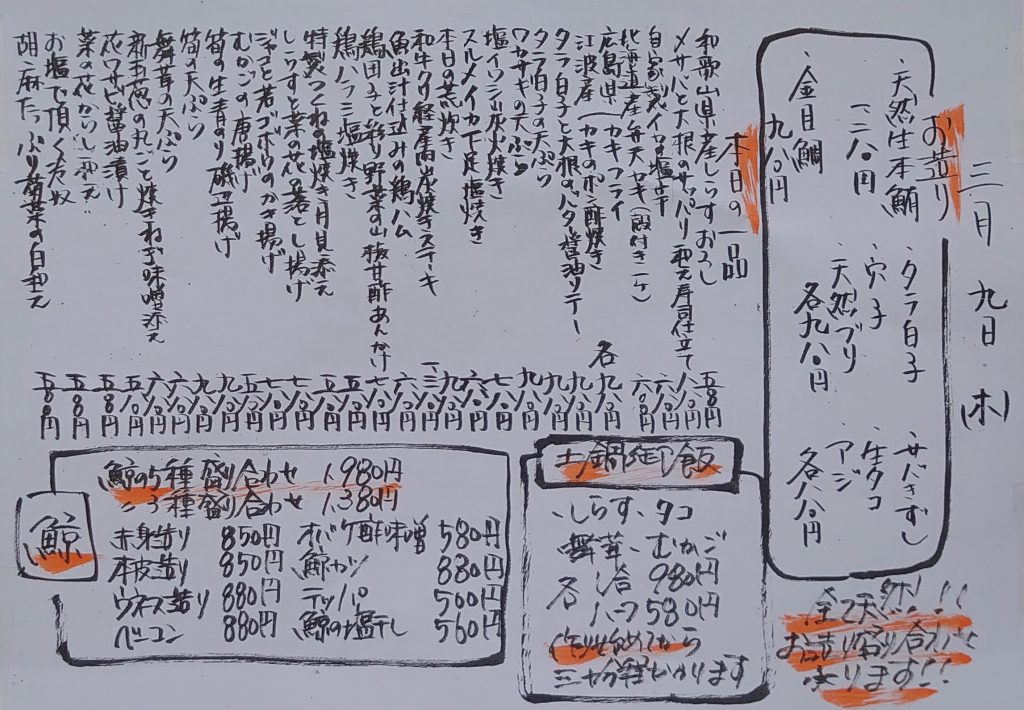 三月九日(木)
お造り
・天然生本鮪
一二八〇円
・金目鯛
九八〇円
・タラ白子
・穴子
・天然ブリ
各九八〇円
・サバきずし
・生タコ
・アジ
各八八〇円
全て天然!!
お造り盛り合わせ
承ります!!
本日の一品
和歌山県産しらすおろし 五八〇円
〆サバと大根のサッパリ和え寿司仕立て 八八〇円
自家製イカの塩辛 六八〇円
北海道産弁天カキ(殻付き一ヶ) 六八〇円
広島県(カキフライ
江波産(カキのポン酢焼き 各九八〇円
タラ白子と大根のバター醤油ソテー 九八〇円
タラ白子の天ぷら 九八〇円
ワカサギの天ぷら 九八〇円
塩イワシ炭火焼き 七八〇円
スルメイカ下足塩焼き 六八〇円
本日の荒炊き 九八〇円
和牛クリ 炭焼きステーキ
魚出汁仕込みの鶏ハム 六八〇円
鶏団子と彩り野菜の山椒甘酢あんかけ 七八〇円
鶏ハラミ塩焼き 五八〇円
特製つくねの塩焼き月見添え 五八〇円
しらすと菜の花の落とし揚げ 七八〇円
ジャコと若ゴボウのかき揚げ 七八〇円
むかごの唐揚げ 五八〇円
筍の生青のり磯辺揚げ 九八〇円
筍の天ぷら 九八〇円
舞茸の天ぷら 六八〇円
新玉葱の丸ごと焼きねぎ味噌添え 六八〇円
花ワサビ醤油漬け 五八〇円
菜の花からし和え 五八〇円
お塩で頂く冷奴 五八〇円
胡麻たっぷり菊菜の白和え 五八〇円
土鍋御飯
・しらす・タコ
・舞茸・むかご
各一合 980円
ハーフ 580円
作り始めてから
三十分程かかります
鯨
鯨の5種盛り合わせ 1,980円
〃3種盛り合わせ 1,380円
赤身造り 850円
本皮造り 850円
ウネス造り 880円
ベーコン 880円
オバケ酢味噌 580円
鯨カツ 880円
テッパ 500円
鯨の塩干し 560円